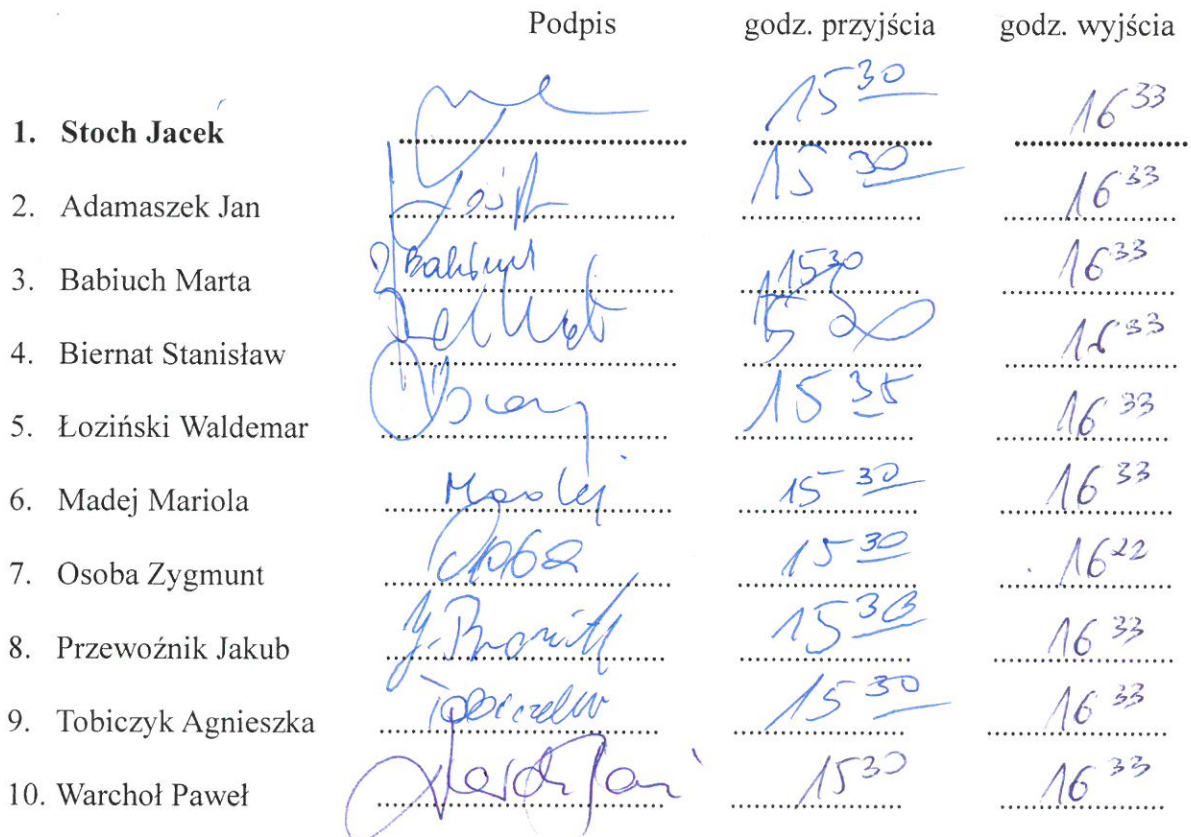 Podpis godz. przyjścia godz. wyjścia
1. Stoch Jacek 15 30 16 33
2. Adamaszek Jan 15 30 16 33
3. Babiuch Marta Babiuch 15 30 16 33
4. Biernat Stanisław 16 33
5. Łoziński Waldemar 15 35 16 33
6. Madej Mariola Madej 15 30 16 33
7. Osoba Zygmunt Osoba 15 30 16 22
8. Przewoźnik Jakub 15 30 16 33
9. Tobiczyk Agnieszka 15 30 16 33
10. Warchoł Paweł 15 30 16 33